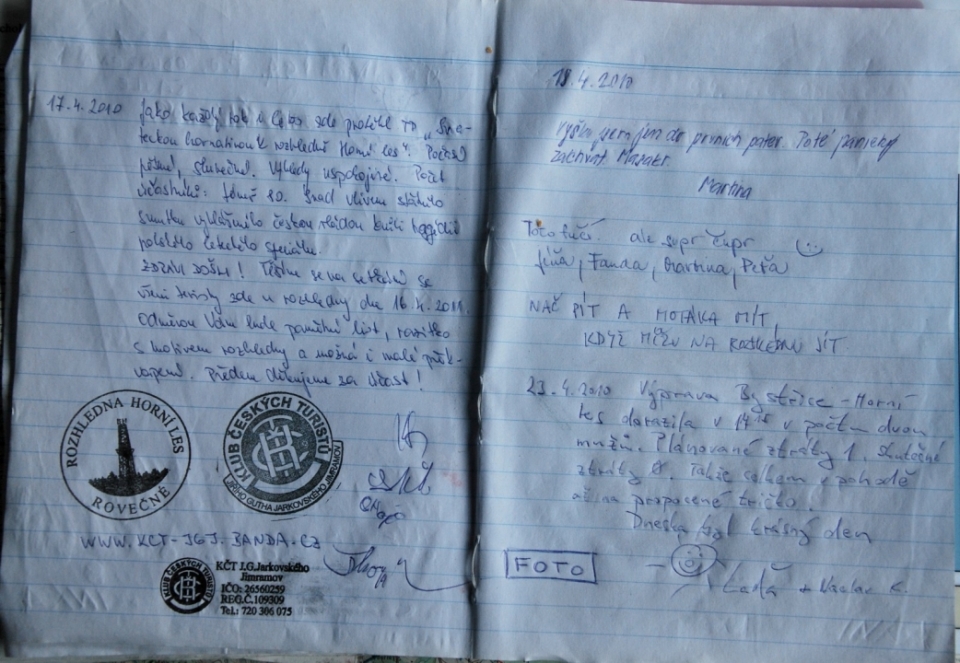 17.4.2010 Jako každý rok i letos zde proběhl TP „Sýkoreckou hornatinou k rozhledně Horní Les“. Počasí
pěkné, slunečné. Výhledy uspokojivé. Počet
účastníků: téměř 20. Snad vlivem státního
smutku vyhlášeného českou vládou kvůli tragédii
polského leteckého speciálu.
ZDRAVÍ DOŠLI! Těšíme se na setkání se
všemi turisty zde u rozhledny dne 16.4.2011.
Odměnou Vám bude pamětní list, razítko
s motivem rozhledny a možná i malé překvapení. Předem děkujeme za účast!
ROZHLEDNA HORNÍ LES
ROVEČNÉ
KLUB ČESKÝCH TURISTŮ
JIŘÍHO GUTHA JARKOVSKÉHO JIMRAMOV
WWW.KCT-JGJ.BANDA.CZ
KLUB ČESKÝCH TURISTŮ
KČT J.G.Jarkovského
Jimramov
IČO: 26560259
REG.Č.109309
Tel.: 720 306 075
18.4.2010
Vyšla jsem jen do prvních pater. Poté panický
záchvat
Martina
Toto fučí ale supr čupr
Fanda, Martina, Peťa
NAČ PÍT A MOŤÁKA MÍT,
KDYŽ MŮŽU NA ROZHLEDNU JÍT.
23.4.2010 Výprava Bystřice - Horní
les dorazila v 17 15 v počtu dvou
mužů. Plánované ztráty 1. Skutečné
ztráty 0. Takže celkem v pohodě
až na propocené tričko.
Dneska byl krásný den
FOTO
Laďa + Václav K.